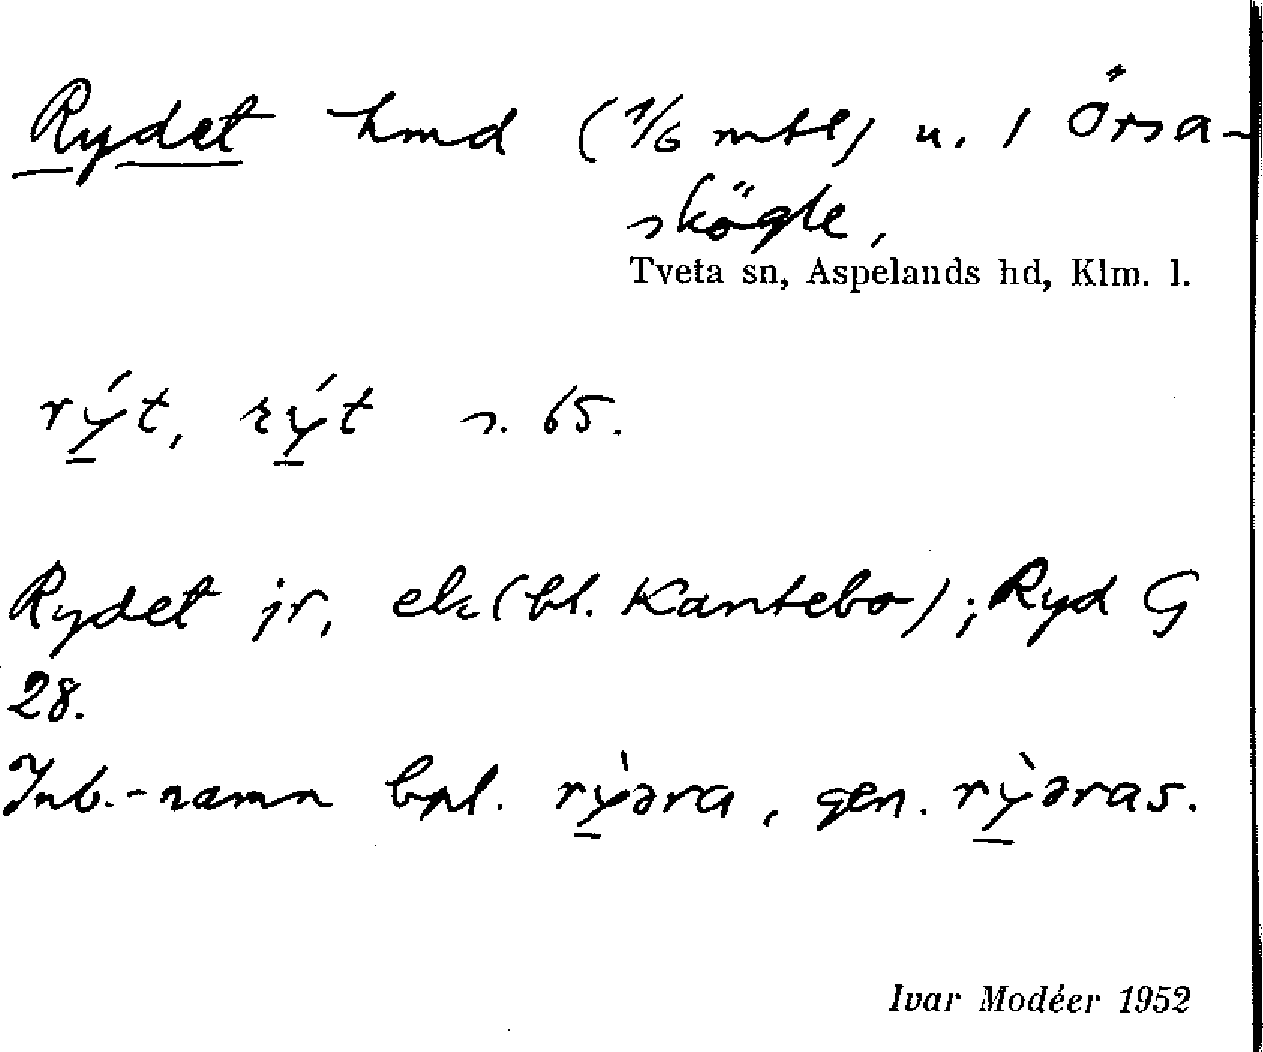 Rydet hmd (1/6 mtl) u. 1 Örsa-
skögle,
Tveta sn, Aspelands hd, Klm. l.
rý̱t, rý̱t s. 65.
Rydet jr, ek (bl. Kantebo); Ryd G
28.
Inb.-namn bpl. rỳ̱əra, gen. rỳ̱əras.
Ivar Modéer 1952